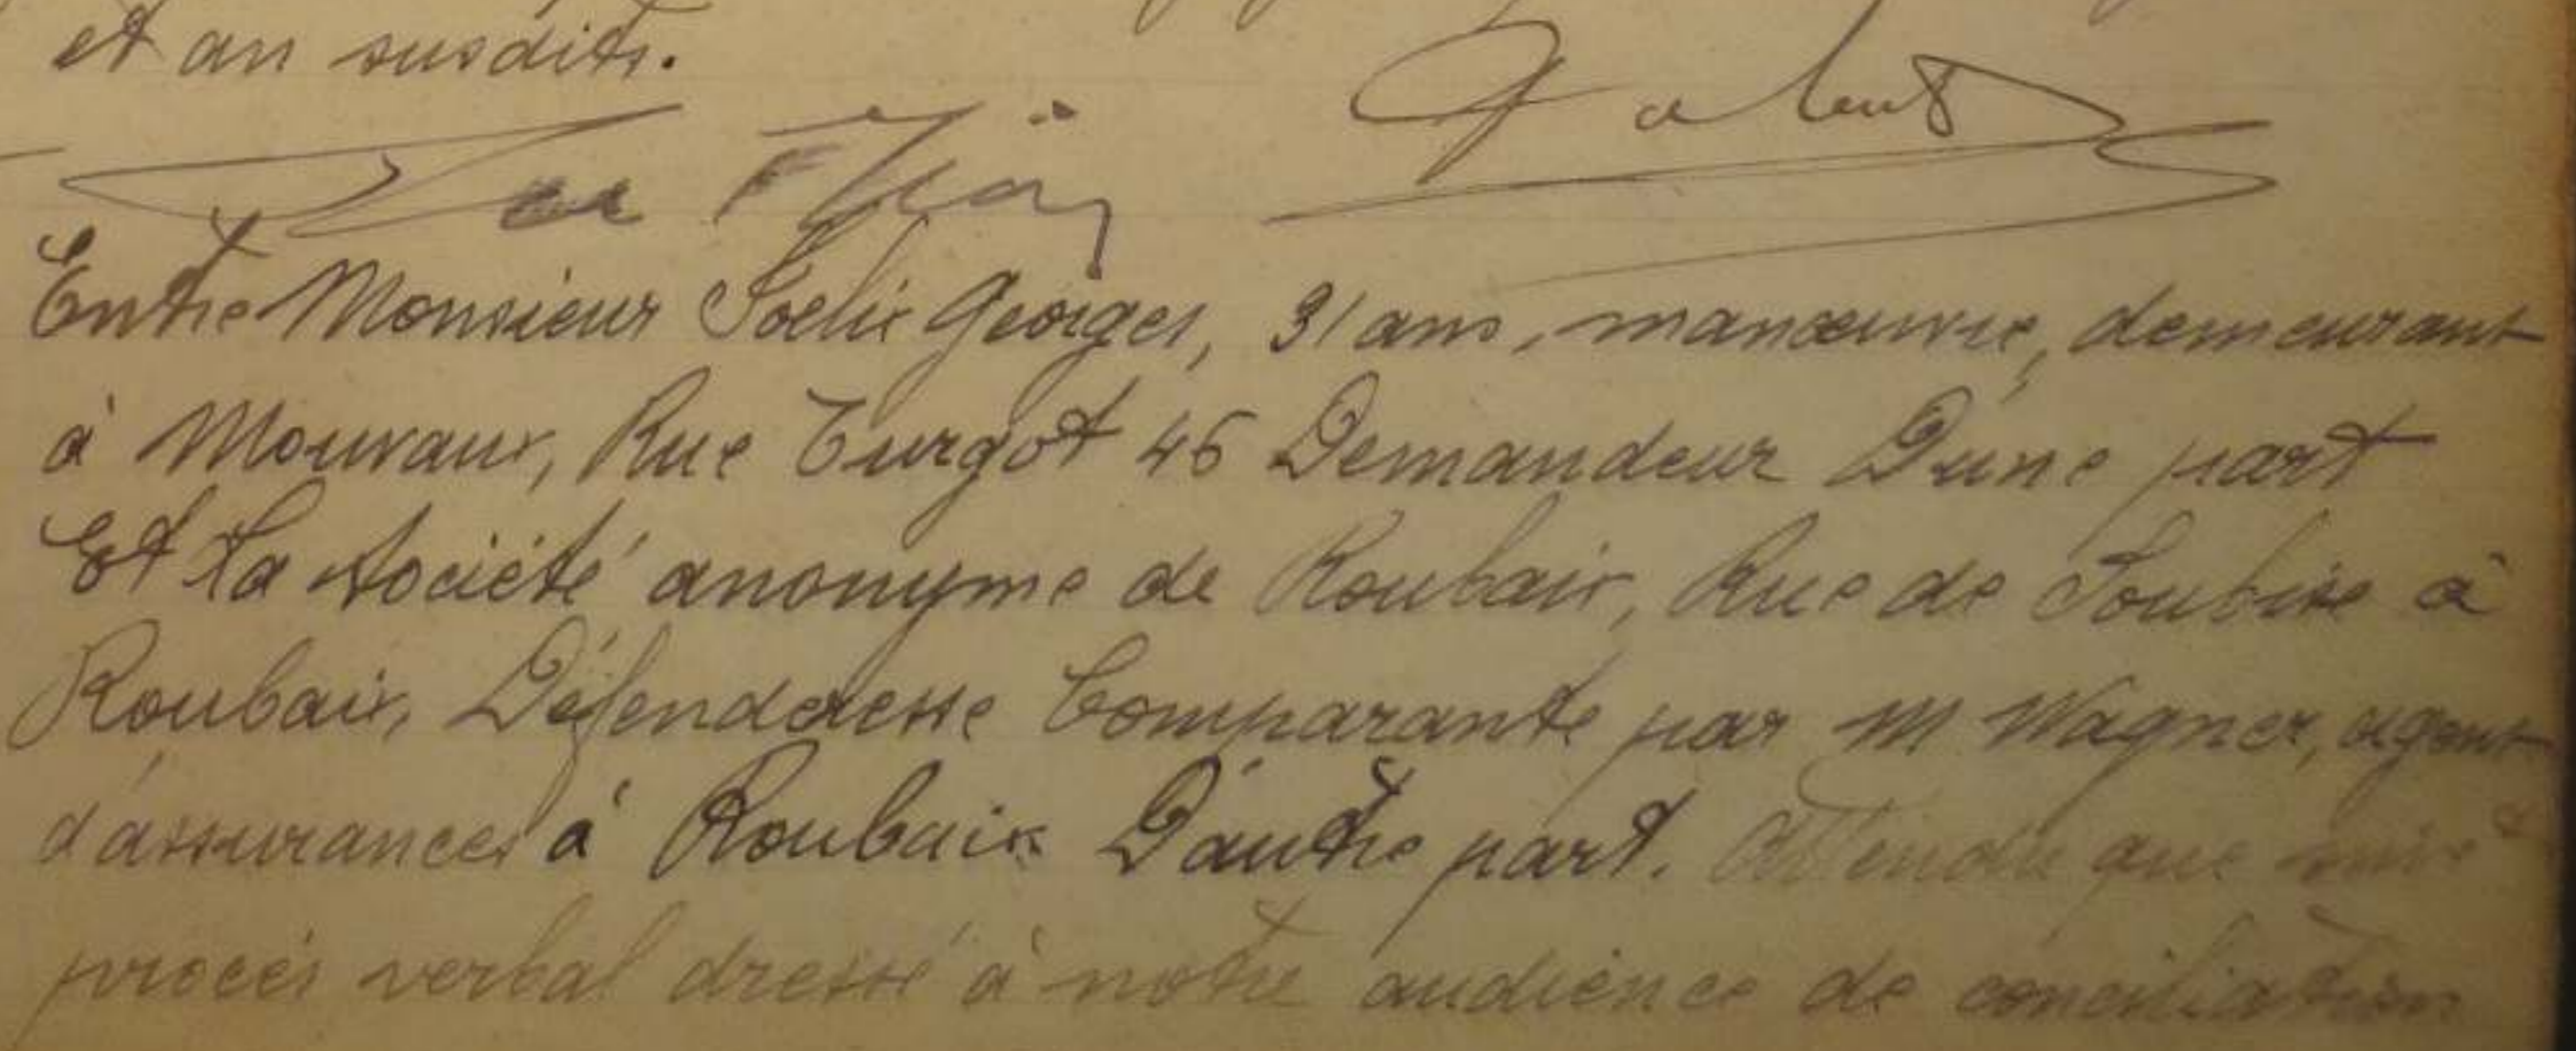 et an susdits.
Entre Monsieur Soelix Georges, 31 ans, manœuvre, demeurant
à Mouvaux, Rue Turgot 46 Demandeur D'une part
Et la société anonyme de Roubaix, Rue de Soubise à
Roubaix, Défenderesse Comparante par M Wagner, agent
d'assurances à Roubaix D'autre part. Attendu que
procès verbal dressé à notre audience de conciliation